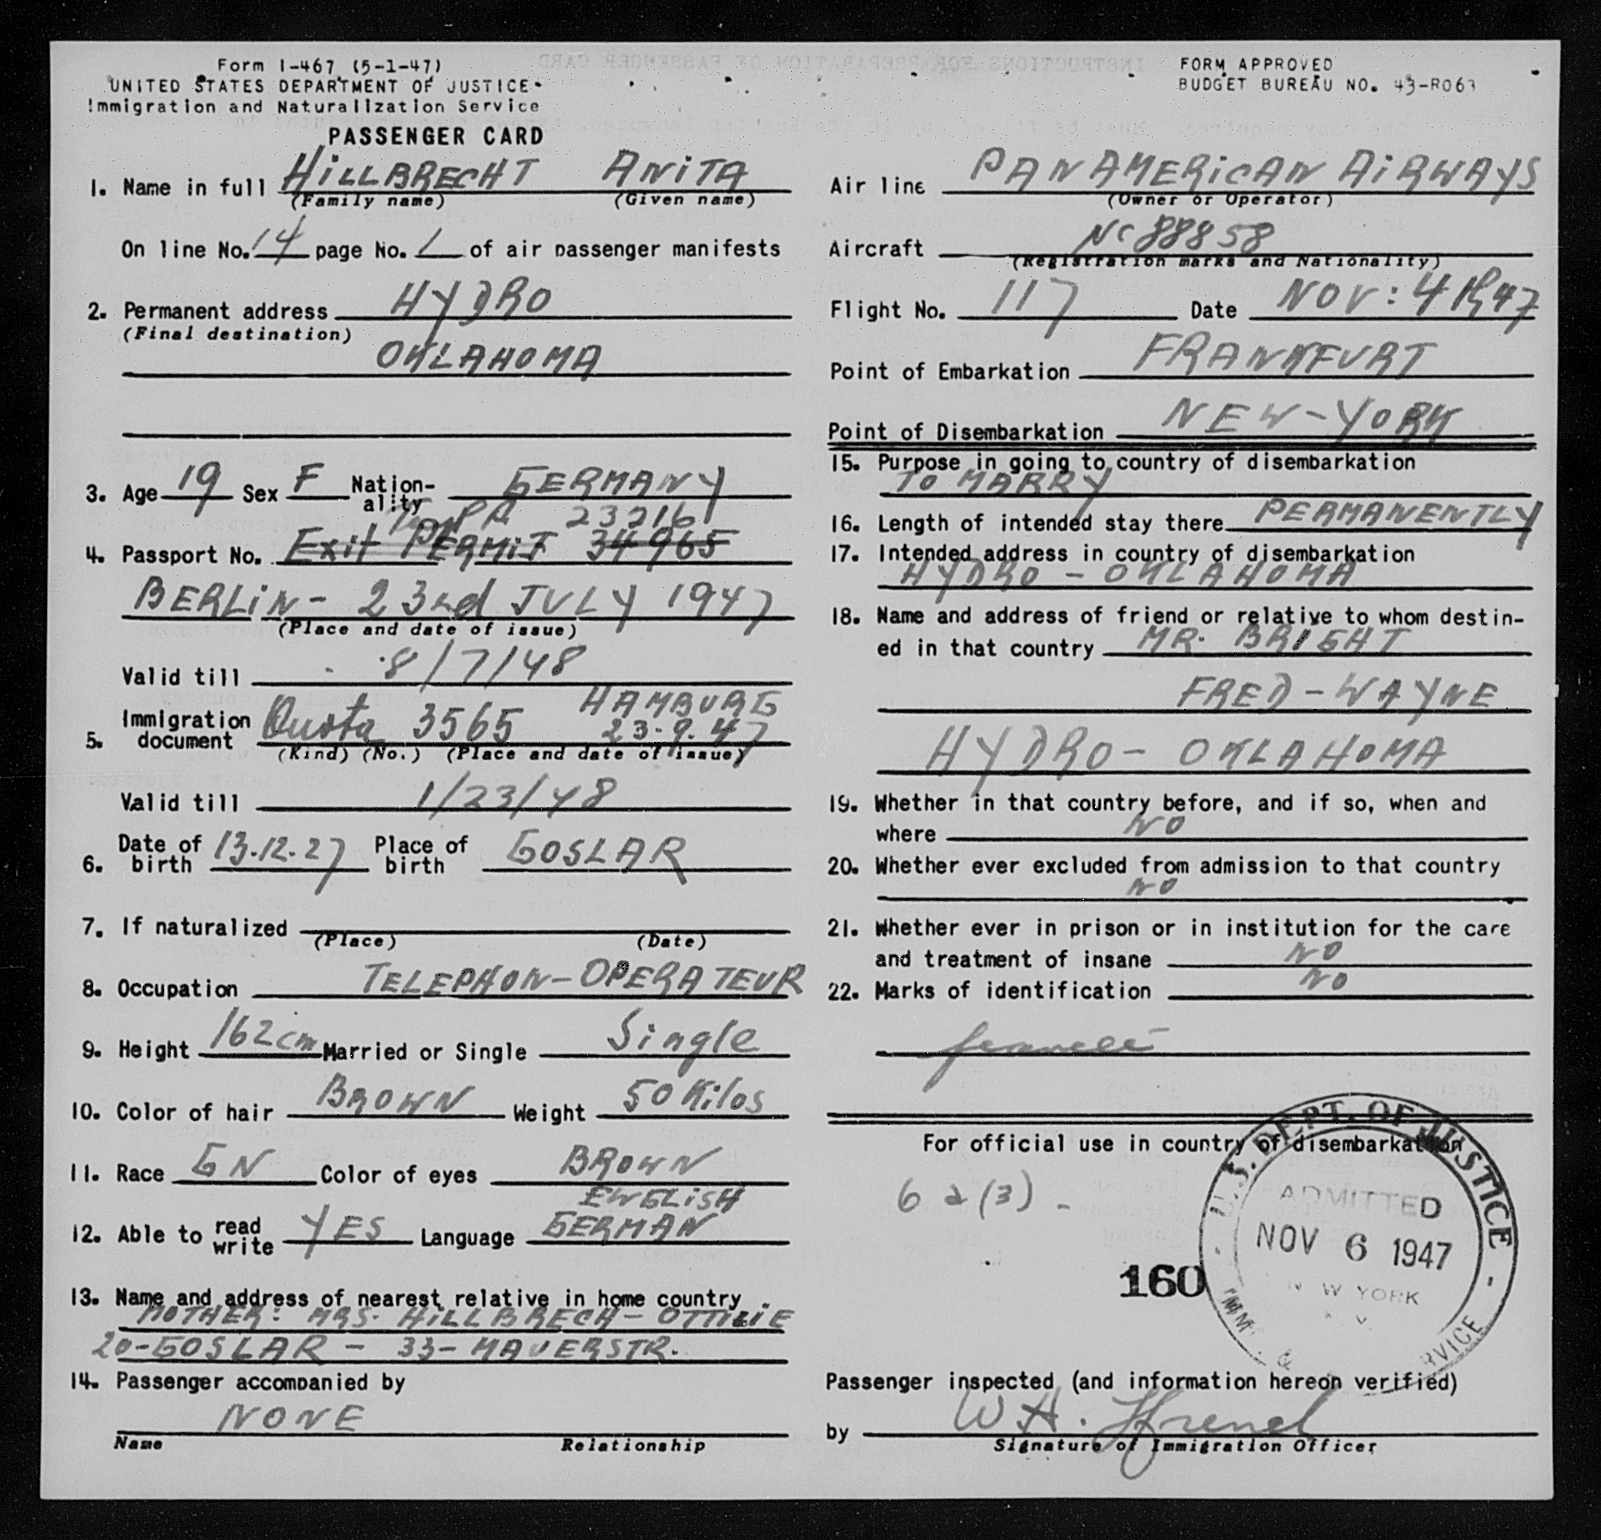 Form I-467 (5-1-47)
UNITED STATES DEPARTMENT OF JUSTICE
Immigration and Naturalization Service
PASSENGER CARD
FORM APPROVED
BUDGET BUREAU NO. 43-R063
1. Name in full HILLBRECHT ANITA
(Family name) (Given name)
On line No. 14 page No. 1 of air passenger manifests
2. Permanent address HYDRO
(Final destination)
OKLAHOMA
3. Age 19 Sex F Nation-ality GERMANY
23216
4. Passport No. Exit PERMIT 34965
BERLIN - 23nd JULY 1947
(Place and date of issue)
Valid till 8/7/48
5. Immigration document Quota 3565 HAMBURG 23.9.47
(Kind) (No.) (Place and date of issue)
Valid till 1/23/48
6. Date of birth 13.12.27 Place of birth GOSLAR
7. If naturalized
(Place) (Date)
8. Occupation TELEPHON-OPERATEUR
9. Height 162cm Married or Single Single
10. Color of hair BROWN Weight 50 Kilos
11. Race GN Color of eyes BROWN
12. Able to read write YES Language ENGLISH GERMAN
13. Name and address of nearest relative in home country
MOTHER: MRS. HILLBRECH - OTTILIE
20-GOSLAR - 33-MAUERSTR.
14. Passenger accompanied by
NONE
Name Relationship
Air line PANAMERICAN AIRWAYS
(Owner or Operator)
Aircraft NC88858
(Registration marks and Nationality)
Flight No. 117 Date NOV: 4 1947
Point of Embarkation FRANKFURT
Point of Disembarkation NEW-YORK
15. Purpose in going to country of disembarkation
TO MARRY
16. Length of intended stay there PERMANENTLY
17. Intended address in country of disembarkation
HYDRO - OKLAHOMA
18. Name and address of friend or relative to whom destin-
ed in that country MR. BRIGHT
FRED-WAYNE
HYDRO - OKLAHOMA
19. Whether in that country before, and if so, when and
where NO
20. Whether ever excluded from admission to that country
NO
21. Whether ever in prison or in institution for the care
and treatment of insane NO
22. Marks of identification NO
For official use in country of disembarkation
6 a (3) -
160
U.S. DEPT. OF JUSTICE
ADMITTED
NOV 6 1947
Passenger inspected (and information hereon verified)
by W.H.
Signature of Immigration Officer